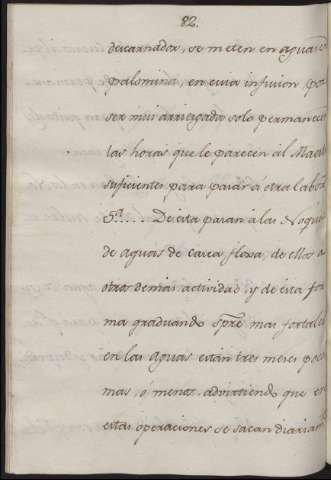 82.
descarnados, se meten en aguas de
palomina, en cuia infusion, por
ser mui arriesgada solo permanecen
las horas que le parecen al Maestro
suficientes para pasar á otra labor.
5ª..... De ésta pasan á las Noques
de aguas de casca floxa, de ellos á
otros demás actividad, y de ésta for
ma graduando spre. mas fortaleza
en las aguas están tres meses poco
mas, ó menos. advirtiendo que en
estas operaciones se sacan diariam.